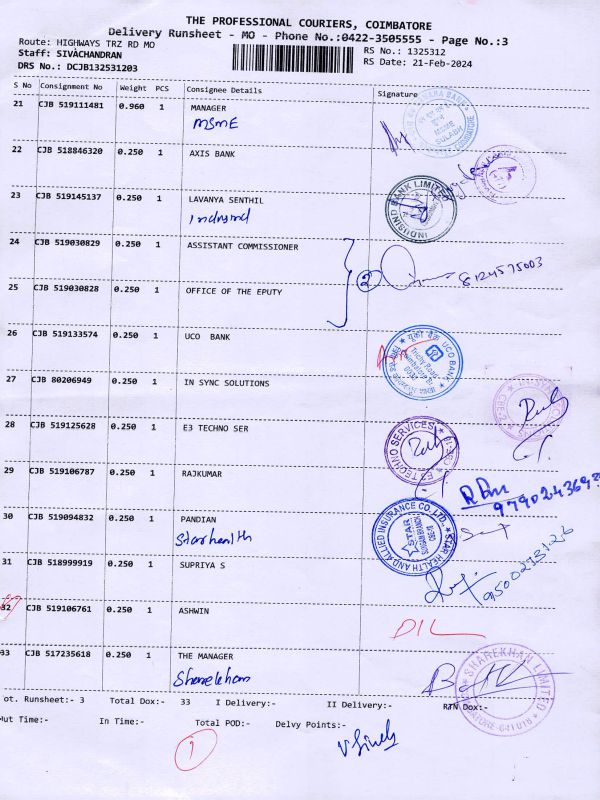 THE PROFESSIONAL COURIERS, COIMBATORE
Delivery Runsheet - MO - Phone No.:0422-3505555 - Page No.:3
Route: HIGHWAYS TRZ RD MO
Staff: SIVACHANDRAN
DRS No.: DCJB132531203
RS No.: 1325312
RS Date: 21-Feb-2024
S No Consignment No Weight PCS Consignee Details Signature
21 CJB 519111481 0.960 1 MANAGER
MSME
22 CJB 518846320 0.250 1 AXIS BANK
23 CJB 519145137 0.250 1 LAVANYA SENTHIL
INDUSIND BANK LIMITED
Indusind
24 CJB 519030829 0.250 1 ASSISTANT COMMISSIONER
2 8124575003
25 CJB 519030828 0.250 1 OFFICE OF THE EPUTY
26 CJB 519133574 0.250 1 UCO BANK
यूको बैंक UCO BANK
27 CJB 80206949 0.250 1 IN SYNC SOLUTIONS
28 CJB 519125628 0.250 1 E3 TECHNO SER
E3 TECHNO SERVICES
29 CJB 519106787 0.250 1 RAJKUMAR
30 CJB 519094832 0.250 1 PANDIAN
Starhealth
STAR HEALTH AND ALLIED INSURANCE CO. LTD.
STAR
31 CJB 518999919 0.250 1 SUPRIYA S
32 CJB 519106761 0.250 1 ASHWIN
DIL
33 CJB 517235618 0.250 1 THE MANAGER
Sharekhan
SHAREKHAN LIMITED
COIMBATORE-641 018
ot. Runsheet:- 3 Total Dox:- 33 I Delivery:- II Delivery:- RTN Dox:-
ut Time:- In Time:- Total POD:- Delvy Points:-
1